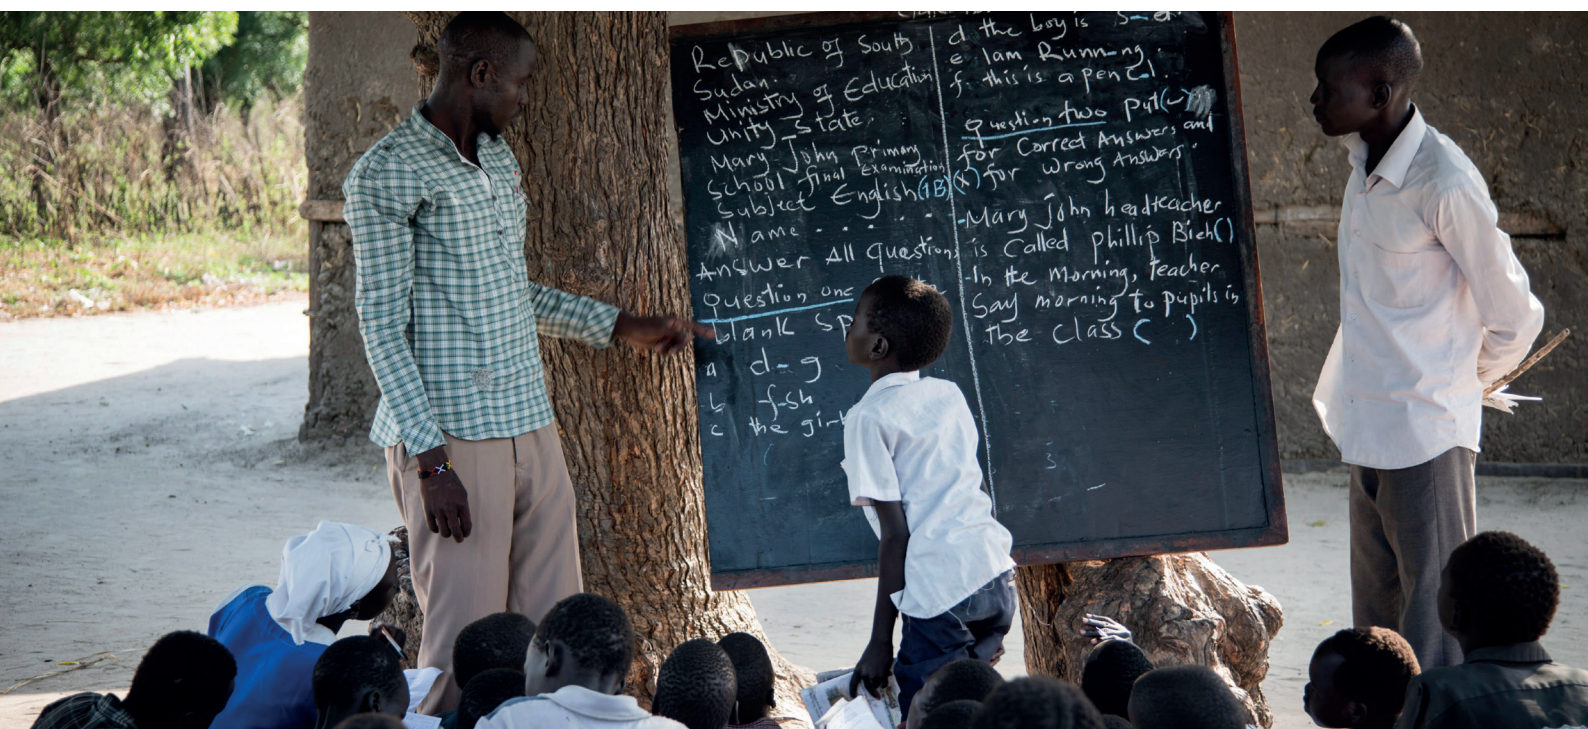 Republic of South
Sudan.
Ministry of Education
Unity State.
Mary John Primary
School final Examination
Subject English (1B)
Name . . . . .
Answer All questions
question one
blank
a d-g
b f-sh
c the girl
d the boy is s-d.
e Iam Runn-ng.
f- this is a pen c l.
Question two put (✓)
for Correct Answers and
(X) for wrong Answers.
-Mary John headteacher
is Called phillip Bieh ( )
-In the Morning, teacher
Say morning to pupils in
the class ( )